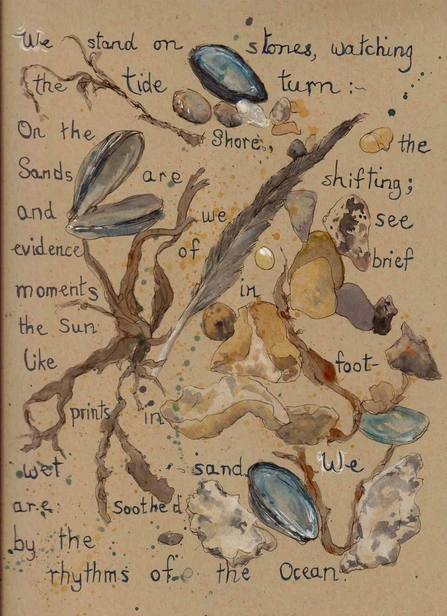 We stand on stones, watching
the tide turn:~
On the Shore, the
Sands are shifting;
and we see
evidence of brief
moments in
the Sun
like foot-
prints in
wet sand. We
are soothed
by the
rhythms of the Ocean.